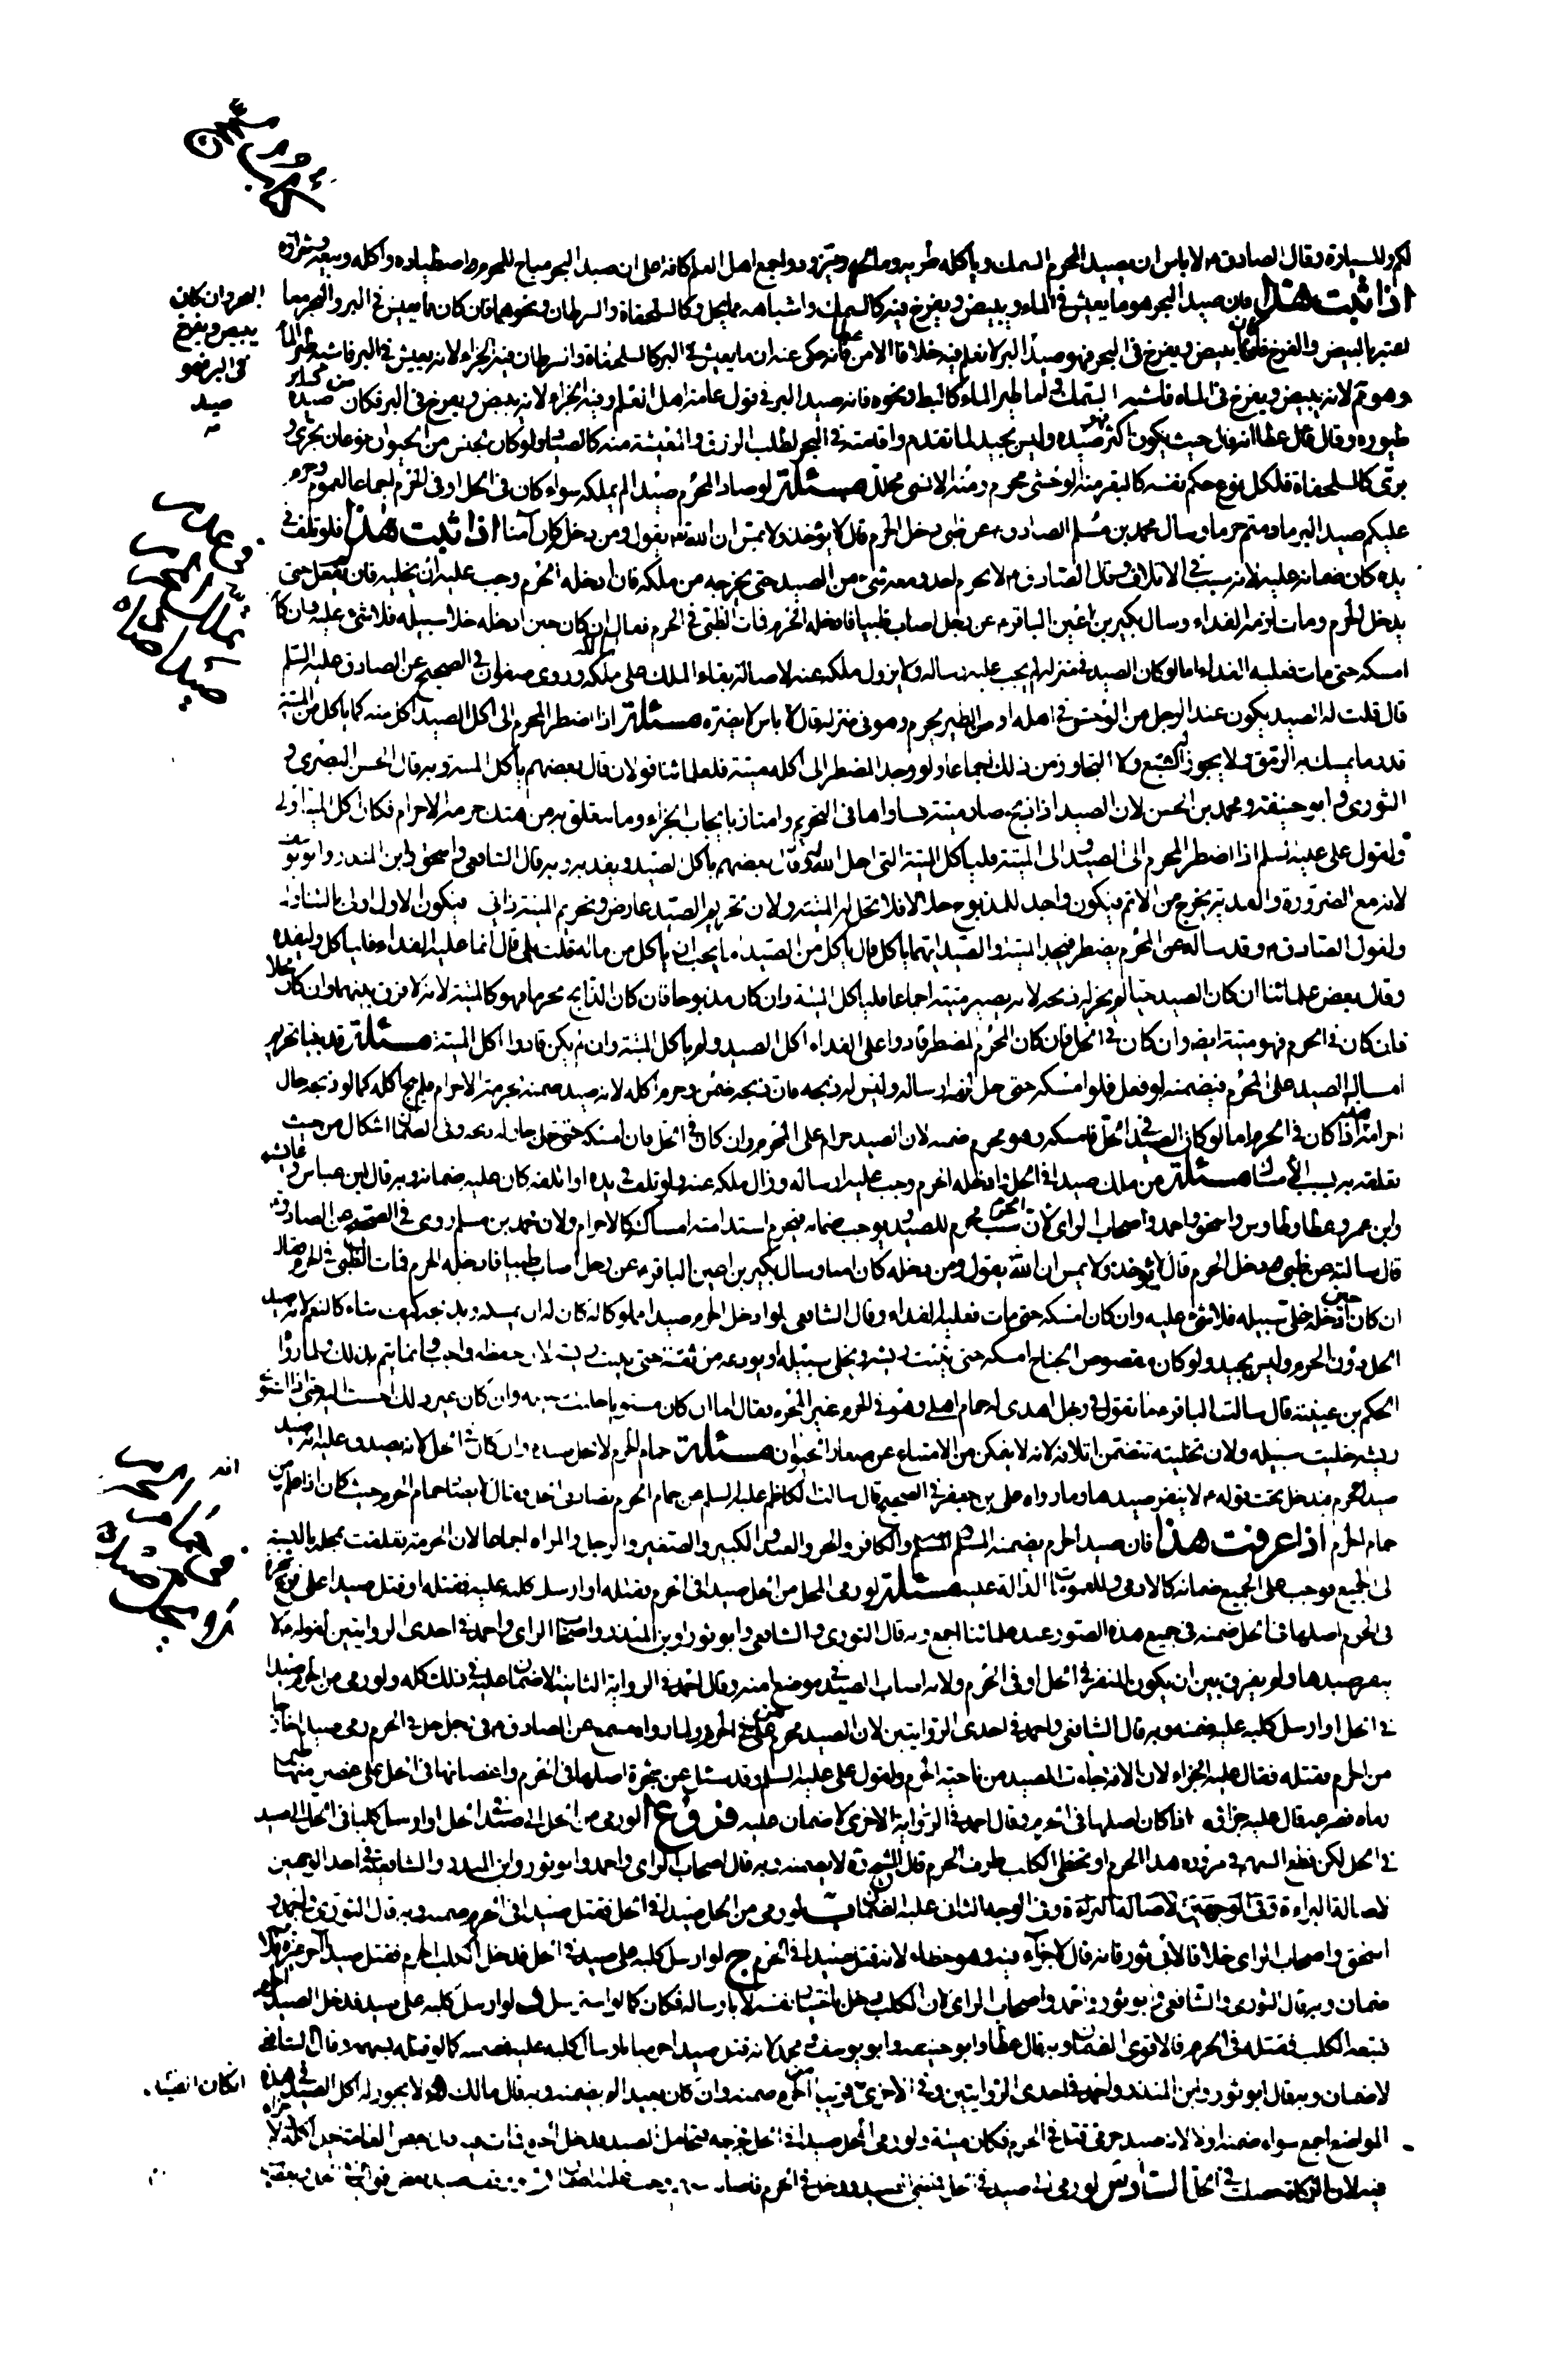 لكم وللسيارة وقال الصادق ع لا باس ان يصيد المحرم السمك وياكله طريه ومالحه ويتزود واجمع اهل العلم كافة على ان صيد البحر مباح للمحرم اصطياده واكله وبيعه وشراؤه
اذا ثبت هذا فان صيد البحر هو ما يعيش في الماء ويبيض ويفرخ فيه كالسمك واشباهه مما يحل وكالسلحفاة والسرطان ونحوهما فان كان مما يعيش في البر والبحر معا
اعتبر بالبيض والفرخ فان كان يبيض ويفرخ في البحر فهو صيد البر لا نعلم فيه خلافا الا من عطا فانه حكى عنه ان ما يعيش في البر كالسلحفاة والسرطان فيه الجزاء لانه يعيش في البر فاشبه طير الماء
وهو لانه يبيض ويفرخ في الماء فاشبه السمك اما طير الماء كالبط ونحوه فانه صيد البر في قول عامة اهل العلم وفيه الجزاء لانه يبيض ويفرخ في البر فكان من صيده
طيوره وقال عطا انه قال حيث يكون اكثر فهو صيده وليس بجيد لما تقدم واقامته في البحر لطلب الرزق والمعيشة منه كالصياد ولو كان لجنس من الحيوان نوعان بحري و
بري كالسلحفاة فلكل نوع حكم نفسه كالبقر منه الوحشي محرم ومنه الانسي محلل مسئلة لو صاد المحرم صيدا لم يملكه سواء كان في الحل او في الحرم اجماعا لعموم وحرم
عليكم صيد البر ما دمتم حرما وسال محمد بن مسلم الصادق ع عن ظبي دخل الحرم قال لا يؤخذ ولا يمس ان الله تع يقول ومن دخله كان آمنا اذا ثبت هذا فلو تلف في
يده كان ضمانه عليه لانه سبب في الاتلاف وقال الصادق ع لا يحرم احد ومعه شئ من الصيد حتى يخرجه من ملكه فان ادخله الحرم وجب عليه ان يخليه فان لم يفعل حتى
يدخل الحرم ومات لزمه الفداء وسال بكير بن اعين الباقر ع عن رجل اصاب ظبيا فادخله الحرم فمات الظبي في الحرم فقال ان كان حين ادخله خلا سبيله فلا شئ عليه وان كان
امسكه حتى مات فعليه الفداء اما لو كان الصيد في منزله لم يجب عليه ارساله ولا يزول ملكه عنه لاصالة بقاء الملك على ملكه وروى صفوان في الصحيح عن الصادق عليه السلم
قال قلت له الصيد يكون عند الرجل من الوحش في اهله او من الطير يحرم وهو في منزله قال لا باس لا يضره مسئلة اذا اضطر المحرم الى اكل الصيد اكل منه كما ياكل من الميتة
قدر ما يمسك به الرمق ولا يجوز له الشبع ولا التجاوز من ذلك اجماعا ولو وجد المضطر الى اكله ميتة فلعلمائنا قولان قال بعضهم ياكل الميتة وبه قال الحسن البصري و
الثوري وابو حنيفة ومحمد بن الحسن لان الصيد اذا ذبح صار ميتة فساواها في التحريم وامتاز بايجاب الجزاء وما يتعلق به من هتك حرمة الاحرام فكان اكل الميتة اولى
ولقول علي عليه السلم اذا اضطر المحرم الى الصيد والى الميتة فلياكل الميتة التي احل الله له وقال بعضهم ياكل الصيد ويفديه وبه قال الشافعي واسحق وابن المنذر وابو يوسف
لانه مع الضرورة والفدية يخرج من الاثم فيكون واجد للمذبوح حلالا فلا تحل له الميتة ولان تحريم الصيد عارض وتحريم الميتة ذاتي فيكون الاول اولى بالتناول
ولقول الصادق ع وقد ساله عن المحرم يضطر فيجد الميتة والصيد ايهما ياكل قال ياكل من الصيد اما يحب ان ياكل من ماله قلت بلى قال انما عليه الفداء فلياكل وليفده
وقال بعض علمائنا ان كان الصيد حيا لم يجز له ذبحه لانه يصير ميتة اجماعا فلياكل الميتة وان كان مذبوحا فان كان الذابح محرما فهو كالميتة لانه لا فرق بينهما وان كان محلا
فان كان في الحرم فهو ميتة ايضا وان كان في الحل فان كان المحرم المضطر قادرا على الفداء اكل الصيد ولم ياكل الميتة وان لم يكن قادرا اكل الميتة مسئلة قد بينا تحريم
امساك الصيد على المحرم فيضمنه لو فعل فلو امسكه حتى حل لزمه ارساله وليس له ذبحه فان ذبحه ضمن وحرم اكله لانه صيد ضمنه بحرمة الاحرام فلم يبح اكله كما لو ذبحه حال
احرامه اذا كان في الحرم اما لو كان الصيد في الحل فامسكه وهو محرم ضمنه لان الصيد حرام على المحرم وان كان في الحل فان امسكه حتى حل جاز له ذبحه وفي الضمان اشكال من حيث
تعلقه به بسبب الامساك مسئلة من ملك صيدا في الحل فادخله الحرم وجب عليه ارساله وزال ملكه عنه ولو تلف في يده او اتلفه كان عليه ضمانه وبه قال ابن عباس وعايشة
وابن عمر وعطا وطاوس واسحق واحمد واصحاب الراي لان الحرم سبب محرم للصيد ويوجب ضمانه فيحرم استدامة امساكه كالاحرام ولان محمد بن مسلم روى في الصحيح عن الصادق ع
قال سالته عن ظبي دخل الحرم قال لا يؤخذ ولا يمس ان الله يقول ومن دخله كان امنا وسال بكير بن اعين الباقر ع عن رجل اصاب ظبيا فادخله الحرم فمات الظبي في الحرم فقال
ان كان حين ادخله خلى سبيله فلا شئ عليه وان كان امسكه حتى مات فعليه الفداء وقال الشافعي لو ادخل الحرم صيدا مملوكا له كان له ان يمسكه ويذبحه كيف شاء كالنعم لانه صيد
الحل دون الحرم وليس بجيد ولو كان مقصوص الجناح امسكه حتى ينبت ريشه ويخلي سبيله او يودعه من ثقة حتى ينبت ريشه لان حفظه واجب وانما يتم بذلك ولما رواه
الحكم بن عيينة قال سالت الباقر ع ما تقول في رجل اهدى له حمام اهلي وهو في الحرم غير الحرم فقال اما ان كان مستويا خليت سبيله وان كان غير ذلك احسنت اليه حتى اذا استوى
ريشه خليت سبيله ولان تخليته تتضمن اتلافه لانه لا يتمكن من الامتناع عن صغار الحيوان مسئلة حمام الحرم لا يحل صيده وان كان في الحل لانه يصدق عليه انه صيد
صيد الحرم فيدخل تحت قوله ع لا ينفر صيدها وما رواه علي بن جعفر في الصحيح قال سالت الكاظم عليه السلم عن حمام الحرم يصاد في الحل فقال لا يصاد حمام الحرم حيث كان اذا علم انه من
حمام الحرم اذا عرفت هذا فان صيد الحرم يضمنه المسلم والكافر والحر والعبد والكبير والصغير والرجل والمراة اجماعا لان الحرمة تعلقت بمحله بالنسبة
الى الجميع فوجب على الجميع ضمانه كالادمي وللعمومات الدالة عليه مسئلة لو رمى المحل من الحل صيدا في الحرم فقتله او ارسل كلبه عليه فقتله او قتل صيدا على فرع شجرة
في الحرم اصلها في الحل ضمنه في جميع هذه الصور عند علمائنا اجمع وبه قال الثوري والشافعي وابو ثور وابن المنذر واصحاب الراي واحمد في احدى الروايتين لقوله ع لا
ينفر صيدها ولم يفرق بين ان يكون المنفر في الحل او في الحرم ولانه اصاب الصيد في موضع امنه وقال احمد في الرواية الثانية لا ضمان عليه في ذلك كله ولو رمى من الحرم صيدا
في الحل او ارسل كلبه عليه ضمنه وبه قال الشافعي واحمد في احدى الروايتين لان الصيد محرم على من في الحرم ولما رواه مسمع عن الصادق ع في رجل حل في الحرم رمى صيدا خارجا
من الحرم فقتله فقال عليه الجزاء لان الافة جاءت الصيد من ناحية الحرم ولقول علي عليه السلم وقد سئل عن شجرة اصلها في الحرم واغصانها في الحل على غصن منها طير
رماه فصرعه قال عليه جزاؤه اذا كان اصلها في الحرم وقال احمد في الرواية الاخرى لا ضمان عليه فروع ا لو رمى من الحل الى صيد في الحل او ارسل كلبا في الحل الى صيد
في الحل لكن قطع السهم في مروره هذا الحرم او تخطى الكلب طرف الحرم قال الشيخ ره لا يضمنه وبه قال اصحاب الراي واحمد وابو ثور وابن المنذر والشافعي في احد الوجهين
لاصالة البراءة وفي الوجهين لاصالة البراءة وفي الوجه الثاني عليه الضمان ب لو رمى من الحل صيدا في الحل فقتل صيدا في الحرم ضمنه وبه قال الثوري واحمد و
اسحق واصحاب الراي خلافا لابي ثور فانه قال لا جزاء فيه وهو خطاء لانه قتل صيدا في الحرم ج لو ارسل كلبه على صيد في الحل فدخل الكلب الحرم فقتل صيدا آخر غيره فلا
ضمان وبه قال الثوري والشافعي وابو ثور واحمد واصحاب الراي لان الكلب دخل باختيار نفسه لا بارساله فكان كما لو استرسل د لو ارسل كلبه على صيد فدخل الصيد الحرم
فتبعه الكلب فقتله في الحرم فالاقوى الضمان وبه قال عطا وابو حنيفة وابو يوسف ومحمد لانه قتل صيدا حرميا بارسال كلبه عليه فضمنه كما لو قتله بسهمه وقال الشافعي
لا ضمان وبه قال ابو ثور وابن المنذر واحمد في احدى الروايتين وفي الاخرى ان كان قريبا من الحرم ضمنه وان كان بعيدا لم يضمنه وبه قال مالك ه لا يجوز له اكل الصيد في هذه
المواضع اجمع سواء ضمنه او لا لانه صيد حرمي قتل في الحرم فكان ميتة ولو رمى المحل صيدا في الحل فجرحه فتحامل الصيد فدخل الحرم فمات فيه قال بعض العامة حل اكله ولا جزاء
فيه لان الذكاة حصلت في الحل السادس لو رمى الى صيد في الحل فمضى الصيد ودخل في الحرم فاصابه
البحر وان كان
يبيض ويفرخ
في البر فهو
صيد
انكان ايضا